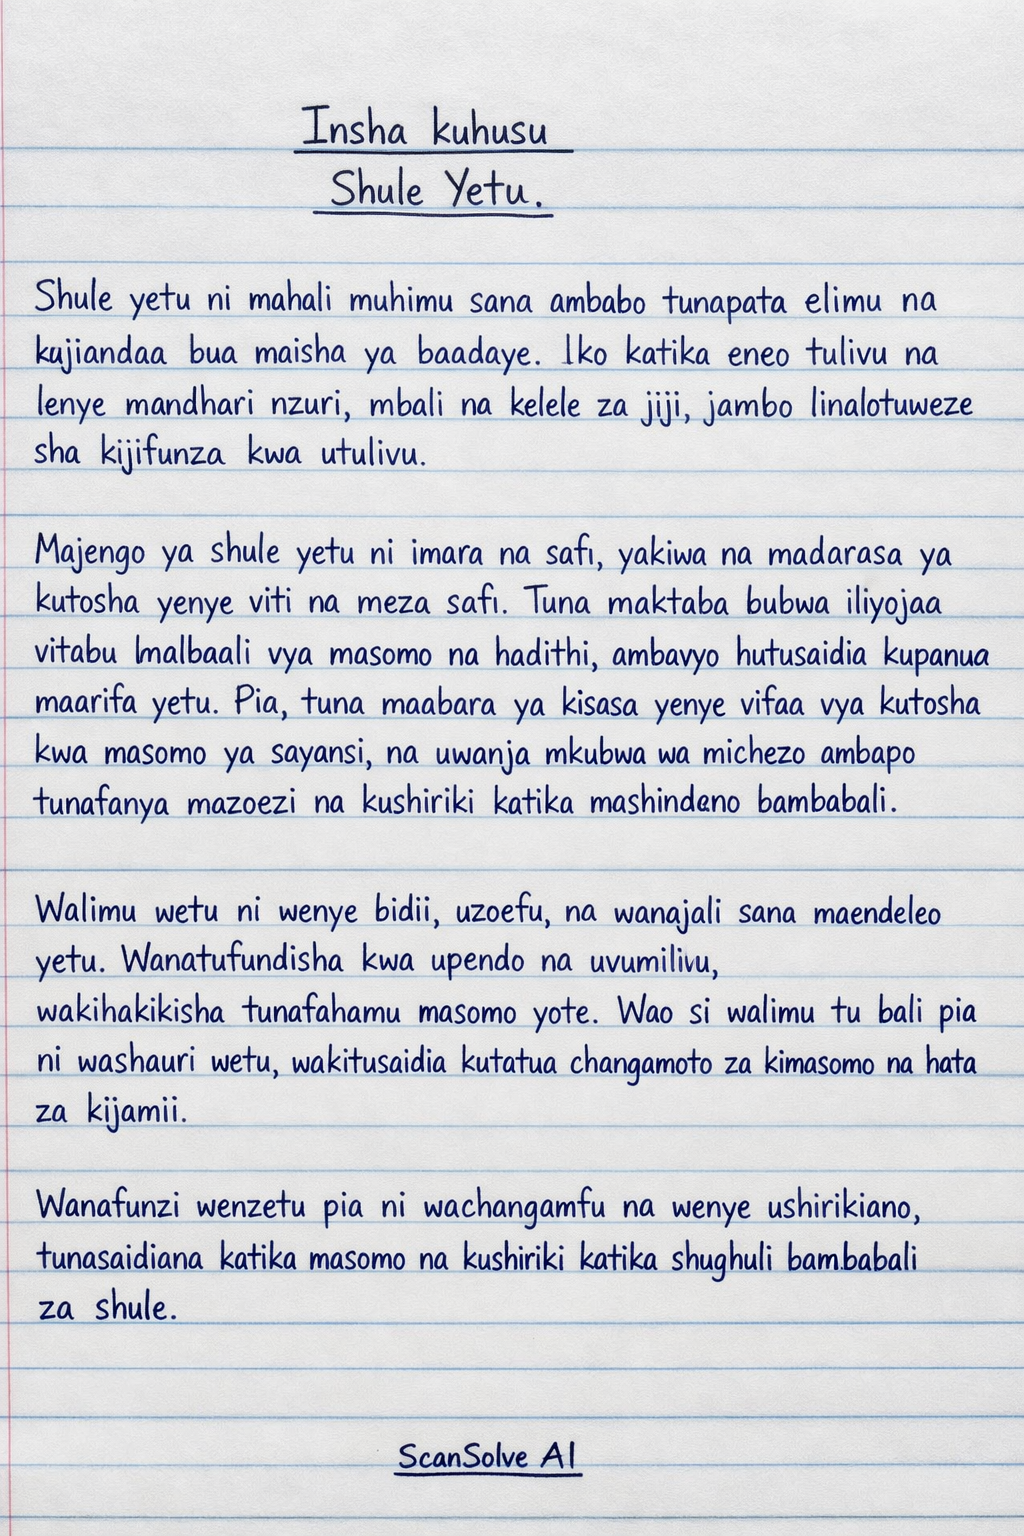 Insha kuhusu
Shule Yetu.
Shule yetu ni mahali muhimu sana ambabo tunapata elimu na
kujiandaa bua maisha ya baadaye. Iko katika eneo tulivu na
lenye mandhari nzuri, mbali na kelele za jiji, jambo linalotuweze
sha kijifunza kwa utulivu.
Majengo ya shule yetu ni imara na safi, yakiwa na madarasa ya
kutosha yenye viti na meza safi. Tuna maktaba bubwa iliyojaa
vitabu lmalbaali vya masomo na hadithi, ambavyo hutusaidia kupanua
maarifa yetu. Pia, tuna maabara ya kisasa yenye vifaa vya kutosha
kwa masomo ya sayansi, na uwanja mkubwa wa michezo ambapo
tunafanya mazoezi na kushiriki katika mashindeno bambabali.
Walimu wetu ni wenye bidii, uzoefu, na wanajali sana maendeleo
yetu. Wanatufundisha kwa upendo na uvumilivu,
wakihakikisha tunafahamu masomo yote. Wao si walimu tu bali pia
ni washauri wetu, wakitusaidia kutatua changamoto za kimasomo na hata
za kijamii.
Wanafunzi wenzetu pia ni wachangamfu na wenye ushirikiano,
tunasaidiana katika masomo na kushiriki katika shughuli bam.babali
za shule.
ScanSolve AI